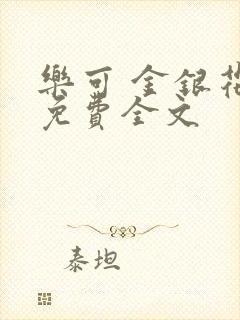 樂可 金銀花
免費全文
泰坦